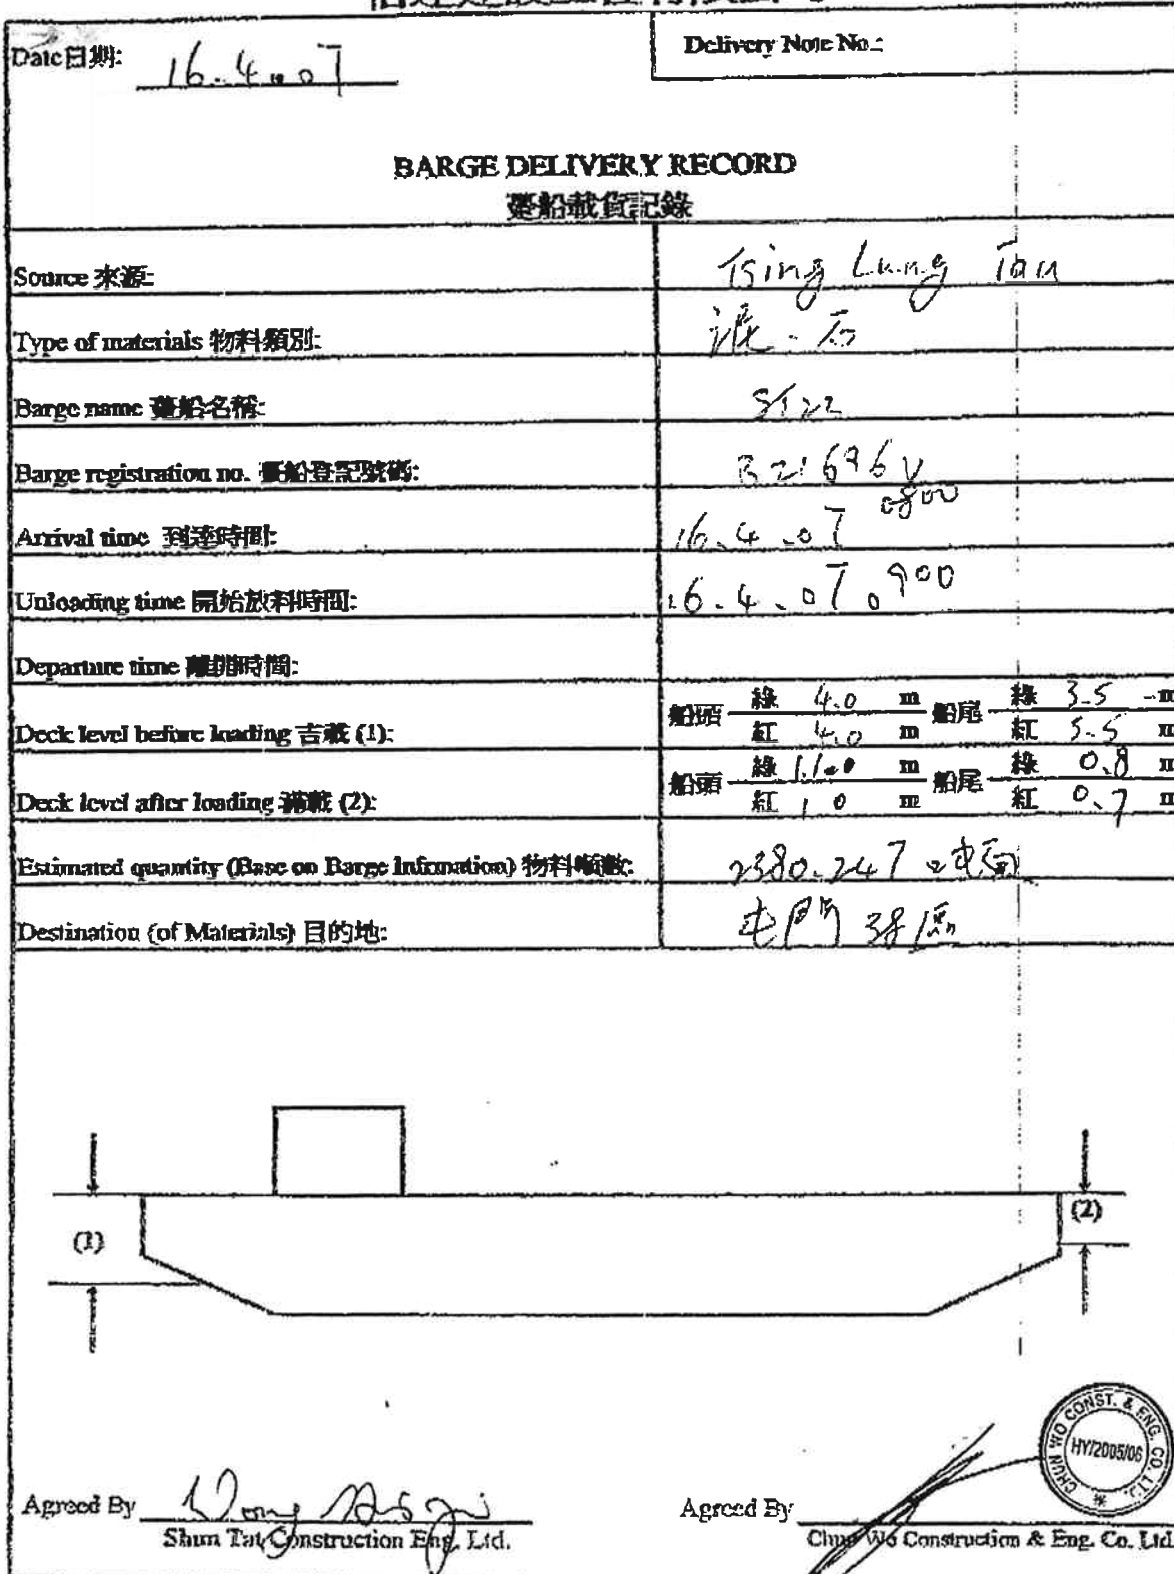 Date日期: 16.4.07
Delivery Note No.:
BARGE DELIVERY RECORD
躉船載貨記錄
Source 來源: Tsing Lung Tau
Type of materials 物料類別: 石
Barge name 躉船名稱: ST22
Barge registration no. 躉船登記號碼: B21696V
Arrival time 到達時間: 16.4.07 0800
Unloading time 開始放料時間: 16.4.07 0900
Departure time 離開時間:
Deck level before loading 吉載 (1): 船頭 綠 4.0 m 紅 4.0 m 船尾 綠 3.5 m 紅 3.5 m
Deck level after loading 滿載 (2): 船頭 綠 m 紅 1.0 m 船尾 綠 0.8 m 紅 0.7 m
Estimated quantity (Base on Barge Infrmation) 物料噸數: 2380.247
Destination (of Materials) 目的地: 屯門38區
(1)
(2)
CHUN WO CONST. & ENG. CO. LTD.
HY/2005/06
Agreed By Wong
Shun Tat Construction Eng. Ltd.
Agreed By
Chun Wo Construction & Eng. Co. Ltd.